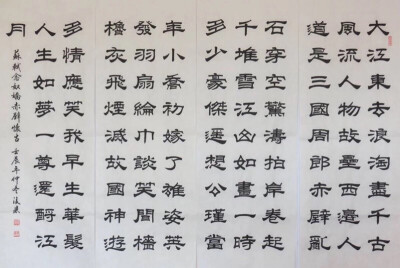 大江東去浪淘盡千古
風流人物故壘西邊人
道是三國周郎赤壁亂
石穿空驚濤拍岸卷起
千堆雪江山如畫一時
多少豪傑遙想公瑾當
年小喬初嫁了雄姿英
發羽扇綸巾談笑間檣
櫓灰飛煙滅故國神遊
多情應笑我早生華髮
人生如夢一尊還酹江
月
蘇軾念奴嬌赤壁懷古 壬辰年仲